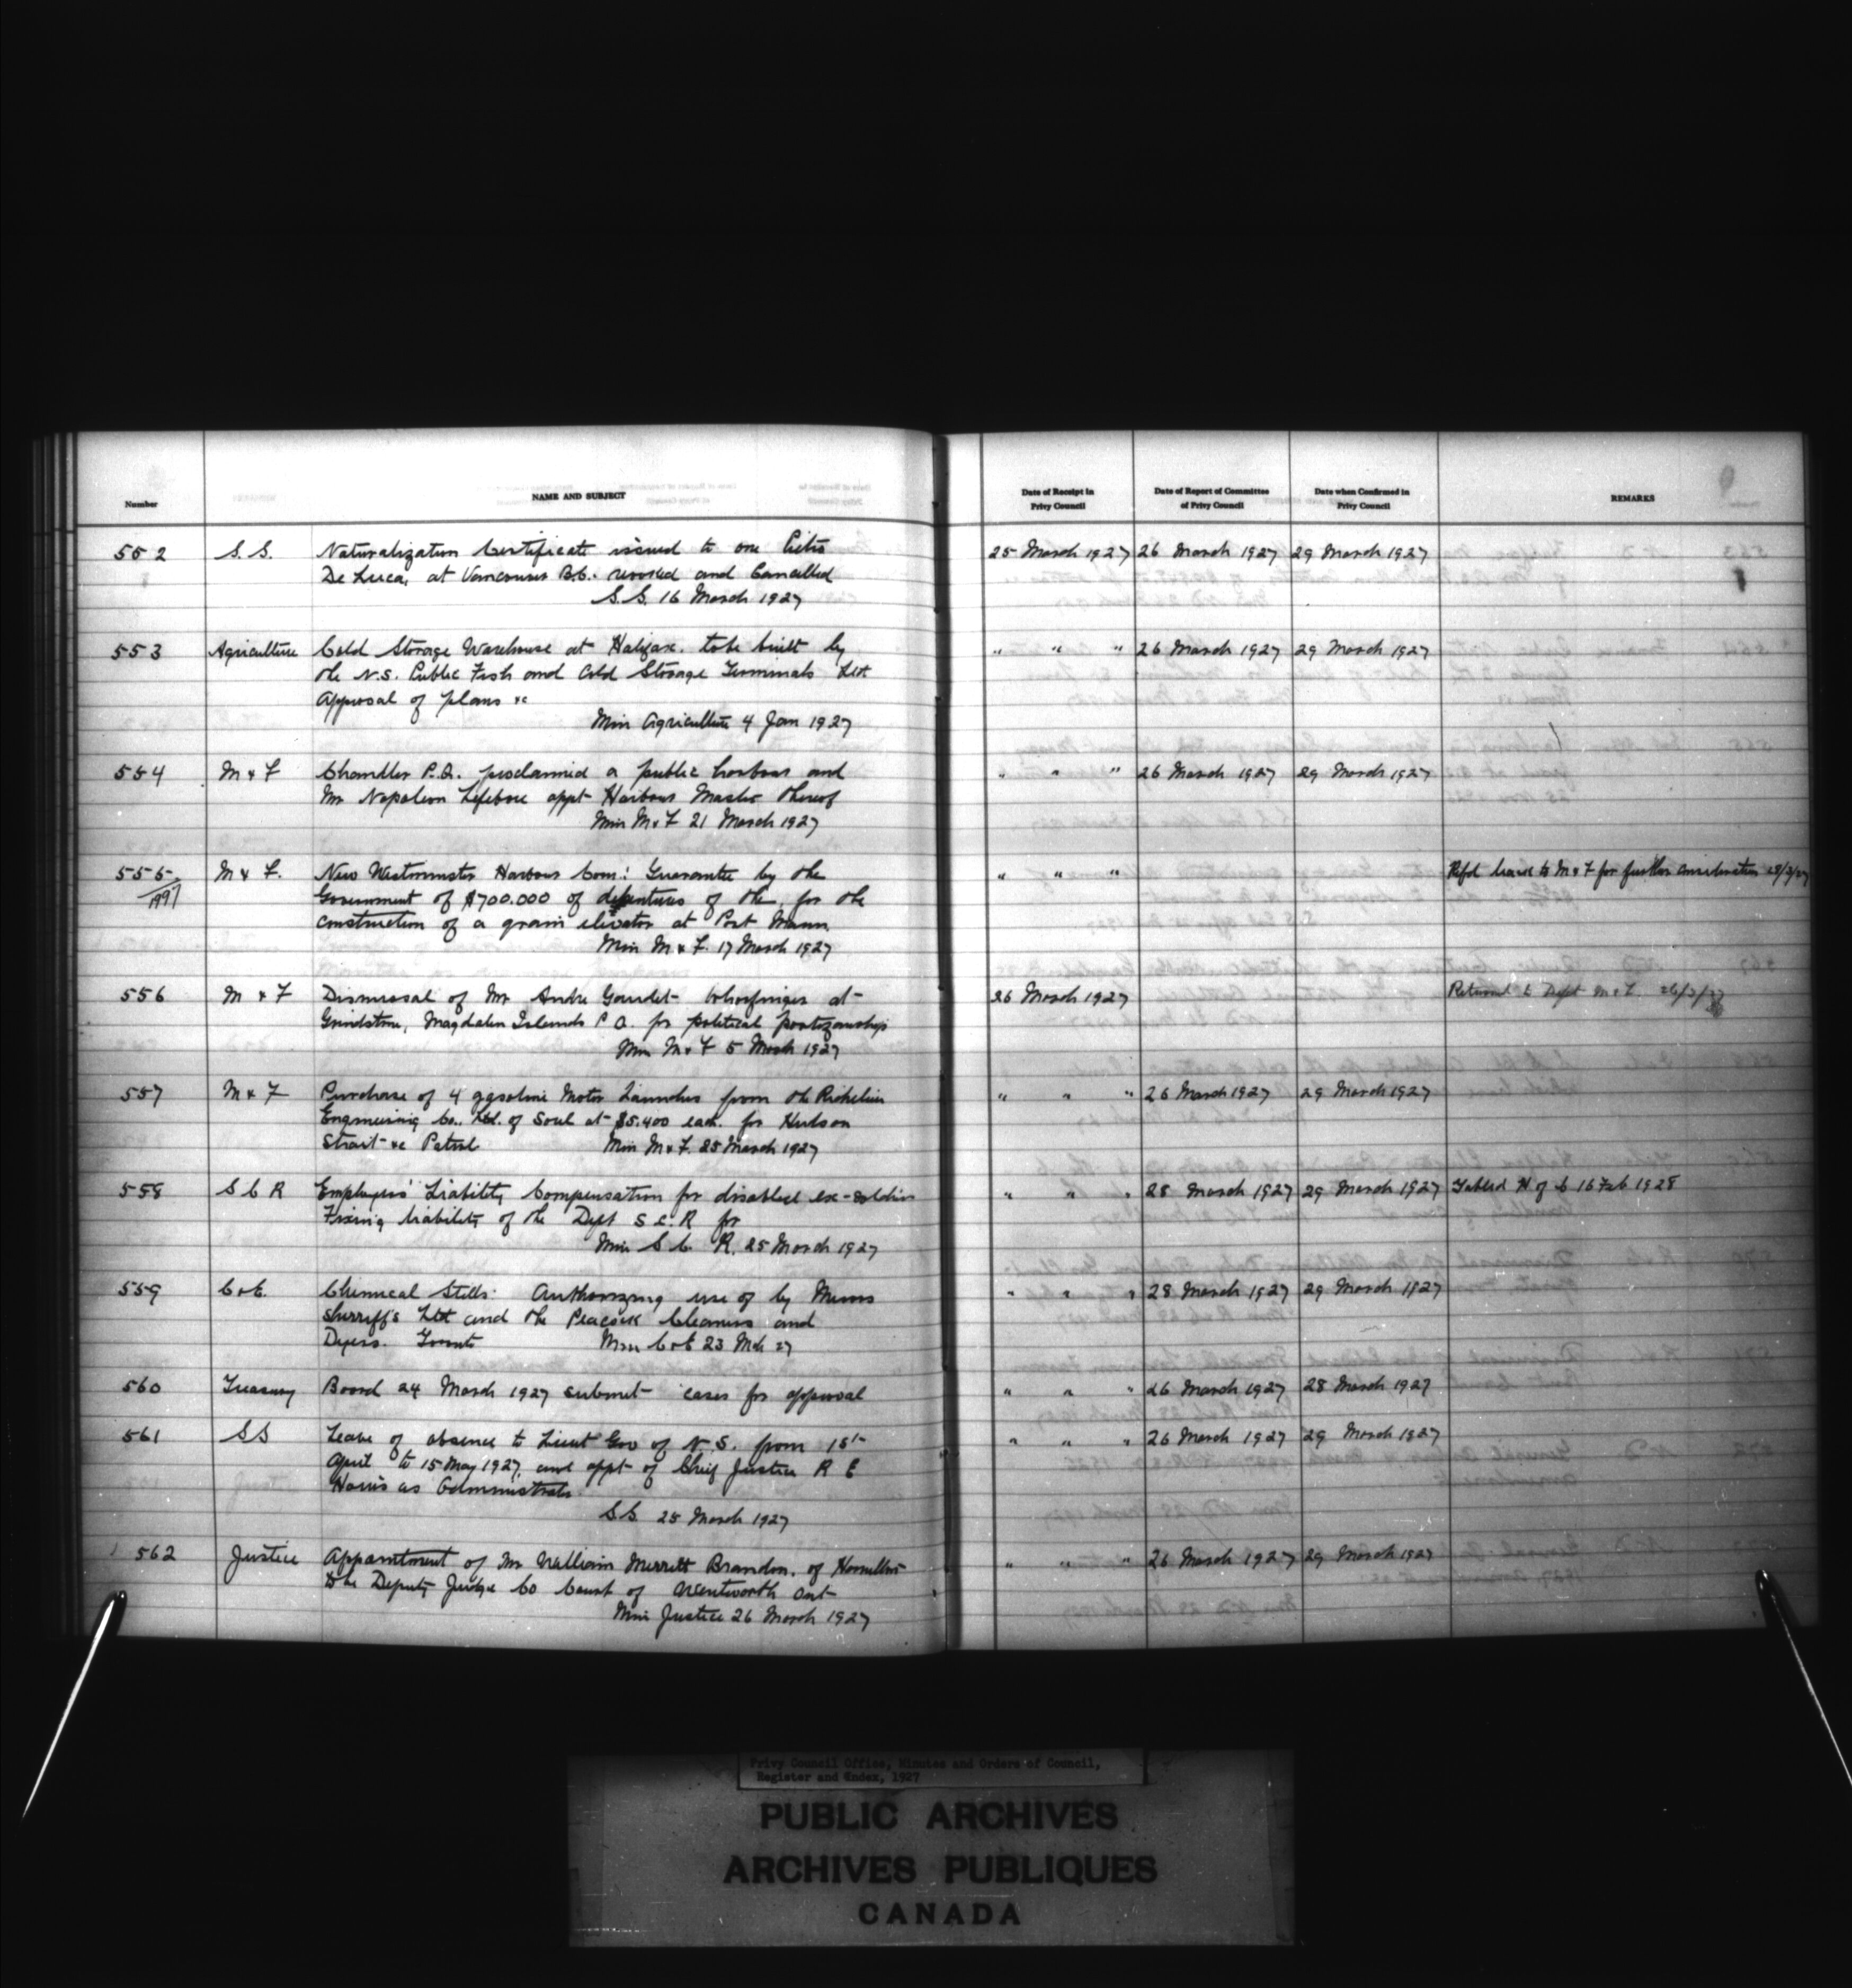 Number
NAME AND SUBJECT
Date of Receipt in Privy Council
Date of Report of Committee of Privy Council
Date when Confirmed in Privy Council
REMARKS
552 S.S. Naturalization Certificate issued to one Pietro 25 March 1927 26 March 1927 29 March 1927
De Luca, at Vancouver B.C. revoked and Cancelled
S.S. 16 March 1927
553 Agriculture Cold Storage Warehouse at Halifax. to be built by " " " 26 March 1927 29 March 1927
the N.S. Public Fish and Cold Storage Terminals Ltd
Approval of plans &c
Min Agriculture 4 Jan 1927
554 M & F Chandler P.Q. proclaimed a public harbour and " " " 26 March 1927 29 March 1927
Mr Napoleon Lefebvre appt Harbour Master thereof
Min M & F 21 March 1927
555 M & F. New Westminster Harbour Com: Guarantee by the " " " Refd back to M & F for further consideration 28/3/27
1997 Government of $700.000 of debentures of the, for the
construction of a grain elevator at Port Mann
Min M & F. 17 March 1927
556 M & F Dismissal of Mr Andre Goudet Wharfinger at 26 March 1927 Returned to Dept M & F. 26/3/27
Grindstone, Magdalen Islands P Q. for political partizanship
Min M & F 5 March 1927
557 M & F Purchase of 4 gasoline Motor Launches from the Richelieu " " " 26 March 1927 29 March 1927
Engineering Co. Ltd. of Sorel at $5.400 each. for Hudson
Strait &c Patrol Min M & F. 25 March 1927
558 S C R Employers' Liability Compensation for disabled ex-soldiers " " " 28 March 1927 29 March 1927 Tabled H of C 16 Feb 1928
Fixing liability of the Dept S C. R for
Min S C R. 25 March 1927
559 C & E. Chemical Stills: Authorizing use of by Messrs " " " 28 March 1927 29 March 1927
Sherriffs Ltd and the Peacock Cleaners and
Dyers. Toronto Min C & E 23 Mch 27
560 Treasury Board 24 March 1927 submit cases for approval " " " 26 March 1927 28 March 1927
561 SS Leave of absence to Lieut Gov of N.S. from 1st " " " 26 March 1927 29 March 1927
April to 15 May 1927, and appt of Chief Justice R E
Harris as Administrator
S.S. 25 March 1927
562 Justice Appointment of Mr William Merritt Brandon, of Hamilton " " " 26 March 1927 29 March 1927
to be Deputy Judge Co Court of Wentworth Ont
Min Justice 26 March 1927
Privy Council Office, Minutes and Orders of Council,
Register and Index, 1927
PUBLIC ARCHIVES
ARCHIVES PUBLIQUES
CANADA